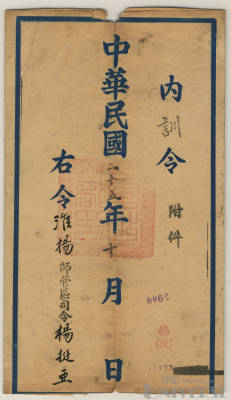 内訓令
附件
中華民國二十五年十月 日
右令淮揚師管區司令楊挺亞
0062